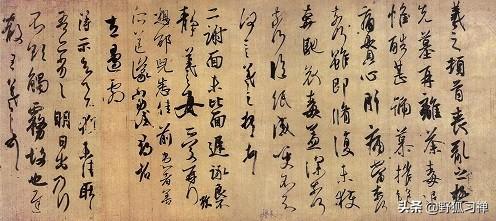 羲之頓首喪亂之極
先墓再離荼毒追
惟酷甚號慕摧絕
痛貫心肝痛當奈何
奈何雖即脩復未獲
奔馳哀毒益深奈何
奈何臨紙感哽不知
何言羲之頓首頓首
二謝面未比面遲詠良
靜羲之女愛再拜
想邵兒悉佳前患者善
左邊劇
得示知足下猶未佳耿耿
吾亦劣劣明日出乃行
不欲觸霧故也遲
散王羲之頓首
头条 @野狐习禅